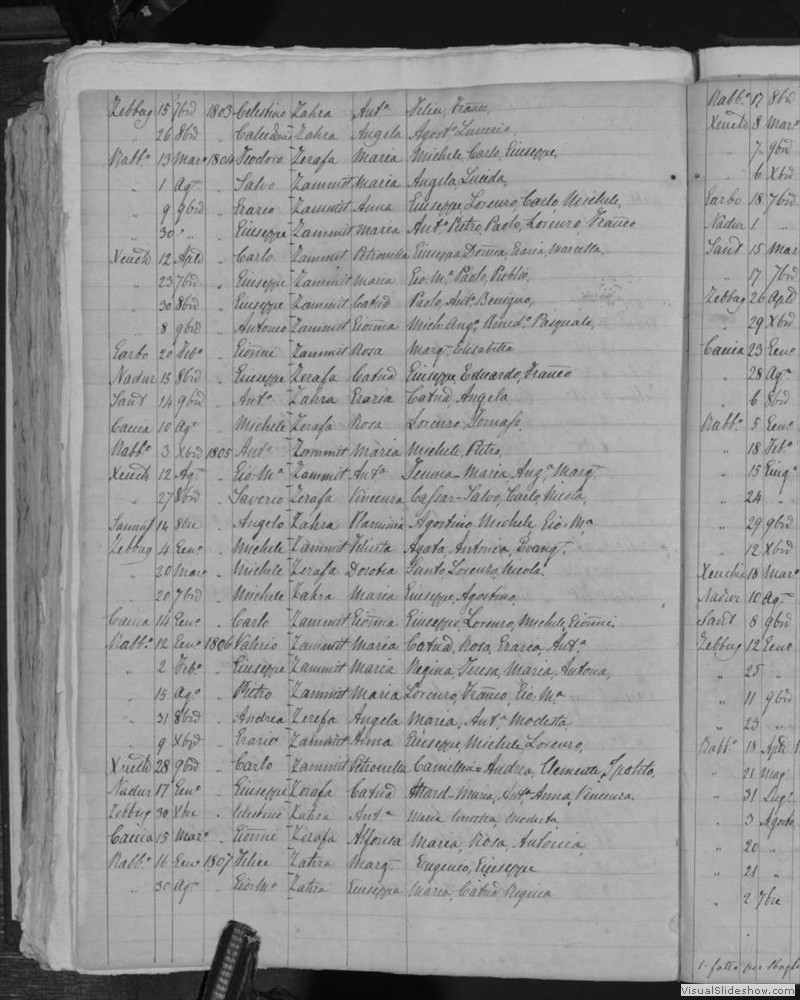 Zebbug 15 7brd 1803 Celestino Zahra Ant.a Felice, Franco,
" 26 8brd " Calcedonio Zahra Angela Agost.o Saverio,
Rabb.o 13 Maro 1804 Teodoro Zerafa Maria Michele, Carlo, Giuseppe,
" 1 Ag. " Salvo Zammit Maria Angela, Lucida,
" 9 9brd " Grazio Zammit Anna Giuseppe, Lorenzo, Carlo, Michele,
" 30 " " Giuseppe Zammit Maria Ant.o Pietro, Paolo, Lorenzo, Franco
Xeuch 12 Apld " Carlo Zammit Petronilla Giuseppa Dom.a, Grazia, Marcella,
" 23 7brd " Giuseppe Zammit Maria Gio. M.a Paolo, Publio,
" 30 8brd " Giuseppe Zammit Catnd Paolo, Ant.o Benigno,
" 8 9brd " Antonio Zammit Gionna Mich. Ang.o Bened.o Pasquale,
Garbo 20 Feb.o " Gionni Zammit Rosa Marg. Elisabetta
Nadur 15 8brd " Giuseppe Zerafa Catnd Giuseppe, Eduardo, Franco
Sant 14 9brd " Ant.o Zahra Grazia Catnd Angela
Caccia 10 Ag.o " Michele Zerafa Rosa Lorenzo, Tomaso,
Rabb.o 3 Xbrd 1805 Ant.o Zammit Maria Michele, Pietro,
Xeuch 12 Ag. " Gio. M.a Zammit Ant.a Maria, Ang.a Marg.
" 27 8brd " Saverio Zerafa Vincenza Salvo, Carlo, Nicola,
Sannat 14 8bre " Angelo Zahra Flaminia Agostino Michele Gio. M.a
Zebbug 4 Geno " Michele Zammit Felicita Agata, Antonia, Evang.
" 20 Maro " Michele Zerafa Dorotea Santo, Lorenzo, Nicola.
" 20 7brd " Michele Zahra Maria Giuseppe, Agostino.
Caccia 14 Geno " Carlo Zammit Gionna Giuseppe, Lorenzo, Michele, Gionni.
Rabb.o 12 Geno 1806 Valerio Zammit Maria Catnd, Rosa, Grazia, Ant.a
" 2 Feb.o " Giuseppe Zammit Maria Regina, Teresa, Maria, Antona,
" 15 Ag.o " Pietro Zammit Maria Lorenzo, Franco, Gio. M.a
" 31 8brd " Andrea Zerefa Angela Maria, Ant.a Modesta
" 9 Xbrd " Grazio Zammit Anna Giuseppe, Michele, Lorenzo,
Xeuch 28 9brd " Carlo Zammit Petronilla Andrea, Clemente, Ipolito.
Nadur 17 Geno " Giuseppe Zerafa Catnd Attard Maria, Ant.a Anna, Vincenza.
Zebbug 30 Xbre " Celestino Zahra Ant.a Maria Modesta
Caccia 15 Maro " Gionni Zerafa Alfonsa Maria, Rosa, Antonia,
Rabb.o 16 Geno 1807 Felice Zahra Marg. Eugenio, Giuseppe
" 30 Ag. " Gio: M.o Zahra Giuseppa Maria, Catnd Regina
Rabb.o 17 8brd
Xeuch 8 Maro
" 7 9brd
" 6 Xbrd
Garbo 18 7brd
Nadur 1 "
Sant 15 Mar
" 17 7brd
Zebbug 26 Apld
" 29 Xbrd
Caccia 23 Geno
" 28 Ag.
" 6 8brd
Rabb.o 5 Geno
" 18 Feb.o
" 15 Giug.o
" 24 "
" 29 9brd
" 12 Xbrd
Xeuchia 18 Maro
Nadur 10 Ag.
Sant 8 9brd
Zebbug 12 Geno
" 25 "
" 11 9brd
" 23 "
Rabb.o 18 Apld
" 21 Mag
" 31 Lug.o
" 3 Agosto
" 20 "
" 21 "
" 2 7bre
VisualSlideshow.com